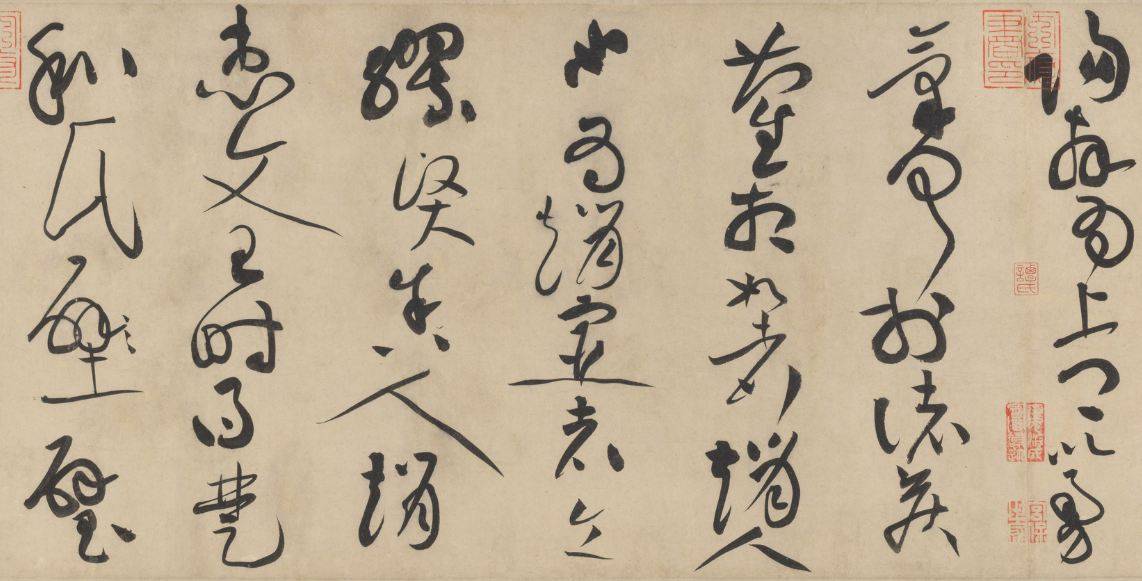 陽拜為上卿以勇
氣聞於諸侯
藺相如者趙人
也為趙宦者令
繆賢舍人趙
惠文王時得楚
和氏壁璧